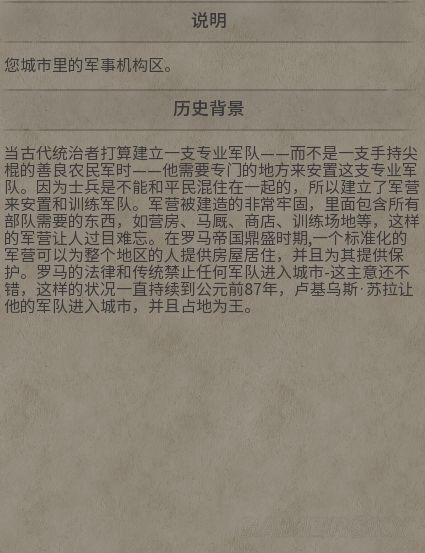 说明
您城市里的军事机构区。
历史背景
当古代统治者打算建立一支专业军队——而不是一支手持尖
棍的善良农民军时——他需要专门的地方来安置这支专业军
队。因为士兵是不能和平民混住在一起的，所以建立了军营
来安置和训练军队。军营被建造的非常牢固，里面包含所有
部队需要的东西，如营房、马厩、商店、训练场地等，这样
的军营让人过目难忘。在罗马帝国鼎盛时期,一个标准化的
军营可以为整个地区的人提供房屋居住，并且为其提供保
护。罗马的法律和传统禁止任何军队进入城市-这主意还不
错，这样的状况一直持续到公元前87年，卢基乌斯·苏拉让
他的军队进入城市，并且占地为王。